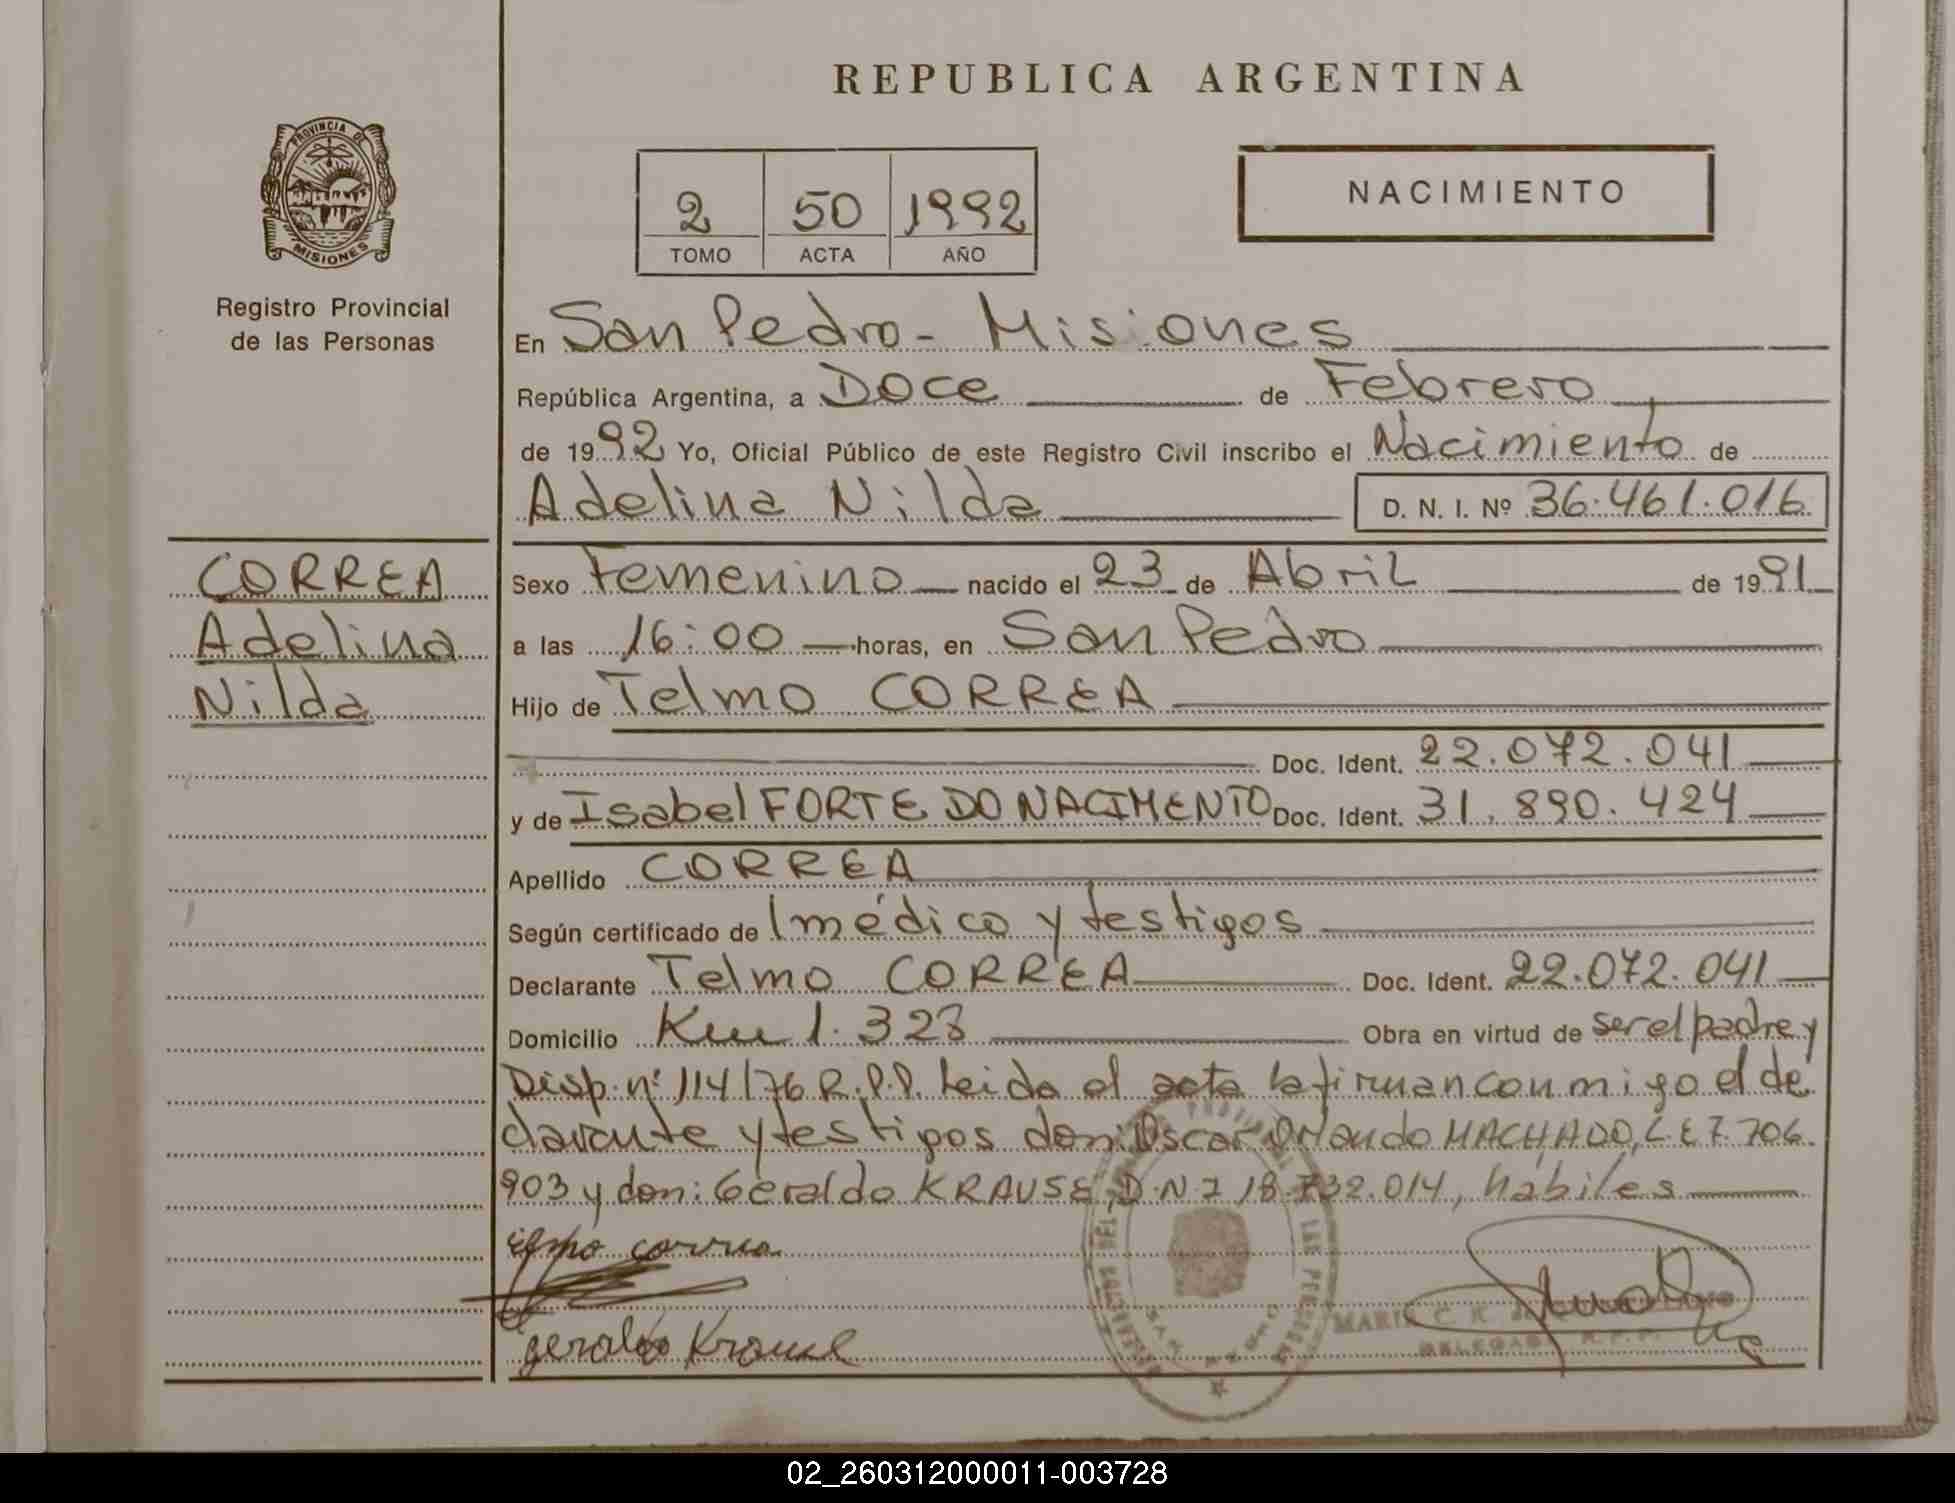 REPUBLICA ARGENTINA
PROVINCIA DE
MISIONES
Registro Provincial
de las Personas
2 50 1992
TOMO ACTA AÑO
NACIMIENTO
En San Pedro - Misiones
República Argentina, a Doce de Febrero
de 1992 Yo, Oficial Público de este Registro Civil inscribo el Nacimiento de
Adelina Nilda D. N. I. Nº 36.461.016
CORREA
Adelina
Nilda
Sexo Femenino nacido el 23 de Abril de 1991
a las 16:00 horas, en San Pedro
Hijo de Telmo CORREA
Doc. Ident. 22.072.041
y de Isabel FORTE DO NACIMENTO Doc. Ident. 31.890.424
Apellido CORREA
Según certificado de 1 médico y testigos
Declarante Telmo CORREA Doc. Ident. 22.072.041
Domicilio Km 1.323 Obra en virtud de ser el padre y
Disp. nº 114/76 R.P.P. Leida el acta la firman conmigo el de
clarante y testigos don: Oscar Orlando MACHADO, L.E 7.706.
903 y don: Geraldo KRAUSE, D.N.I 18.732.014, hábiles
Telmo correa
geraldo Krause
MARIA C. K.
DELEGADA R.P.P.
SAN PEDRO
02_260312000011-003728